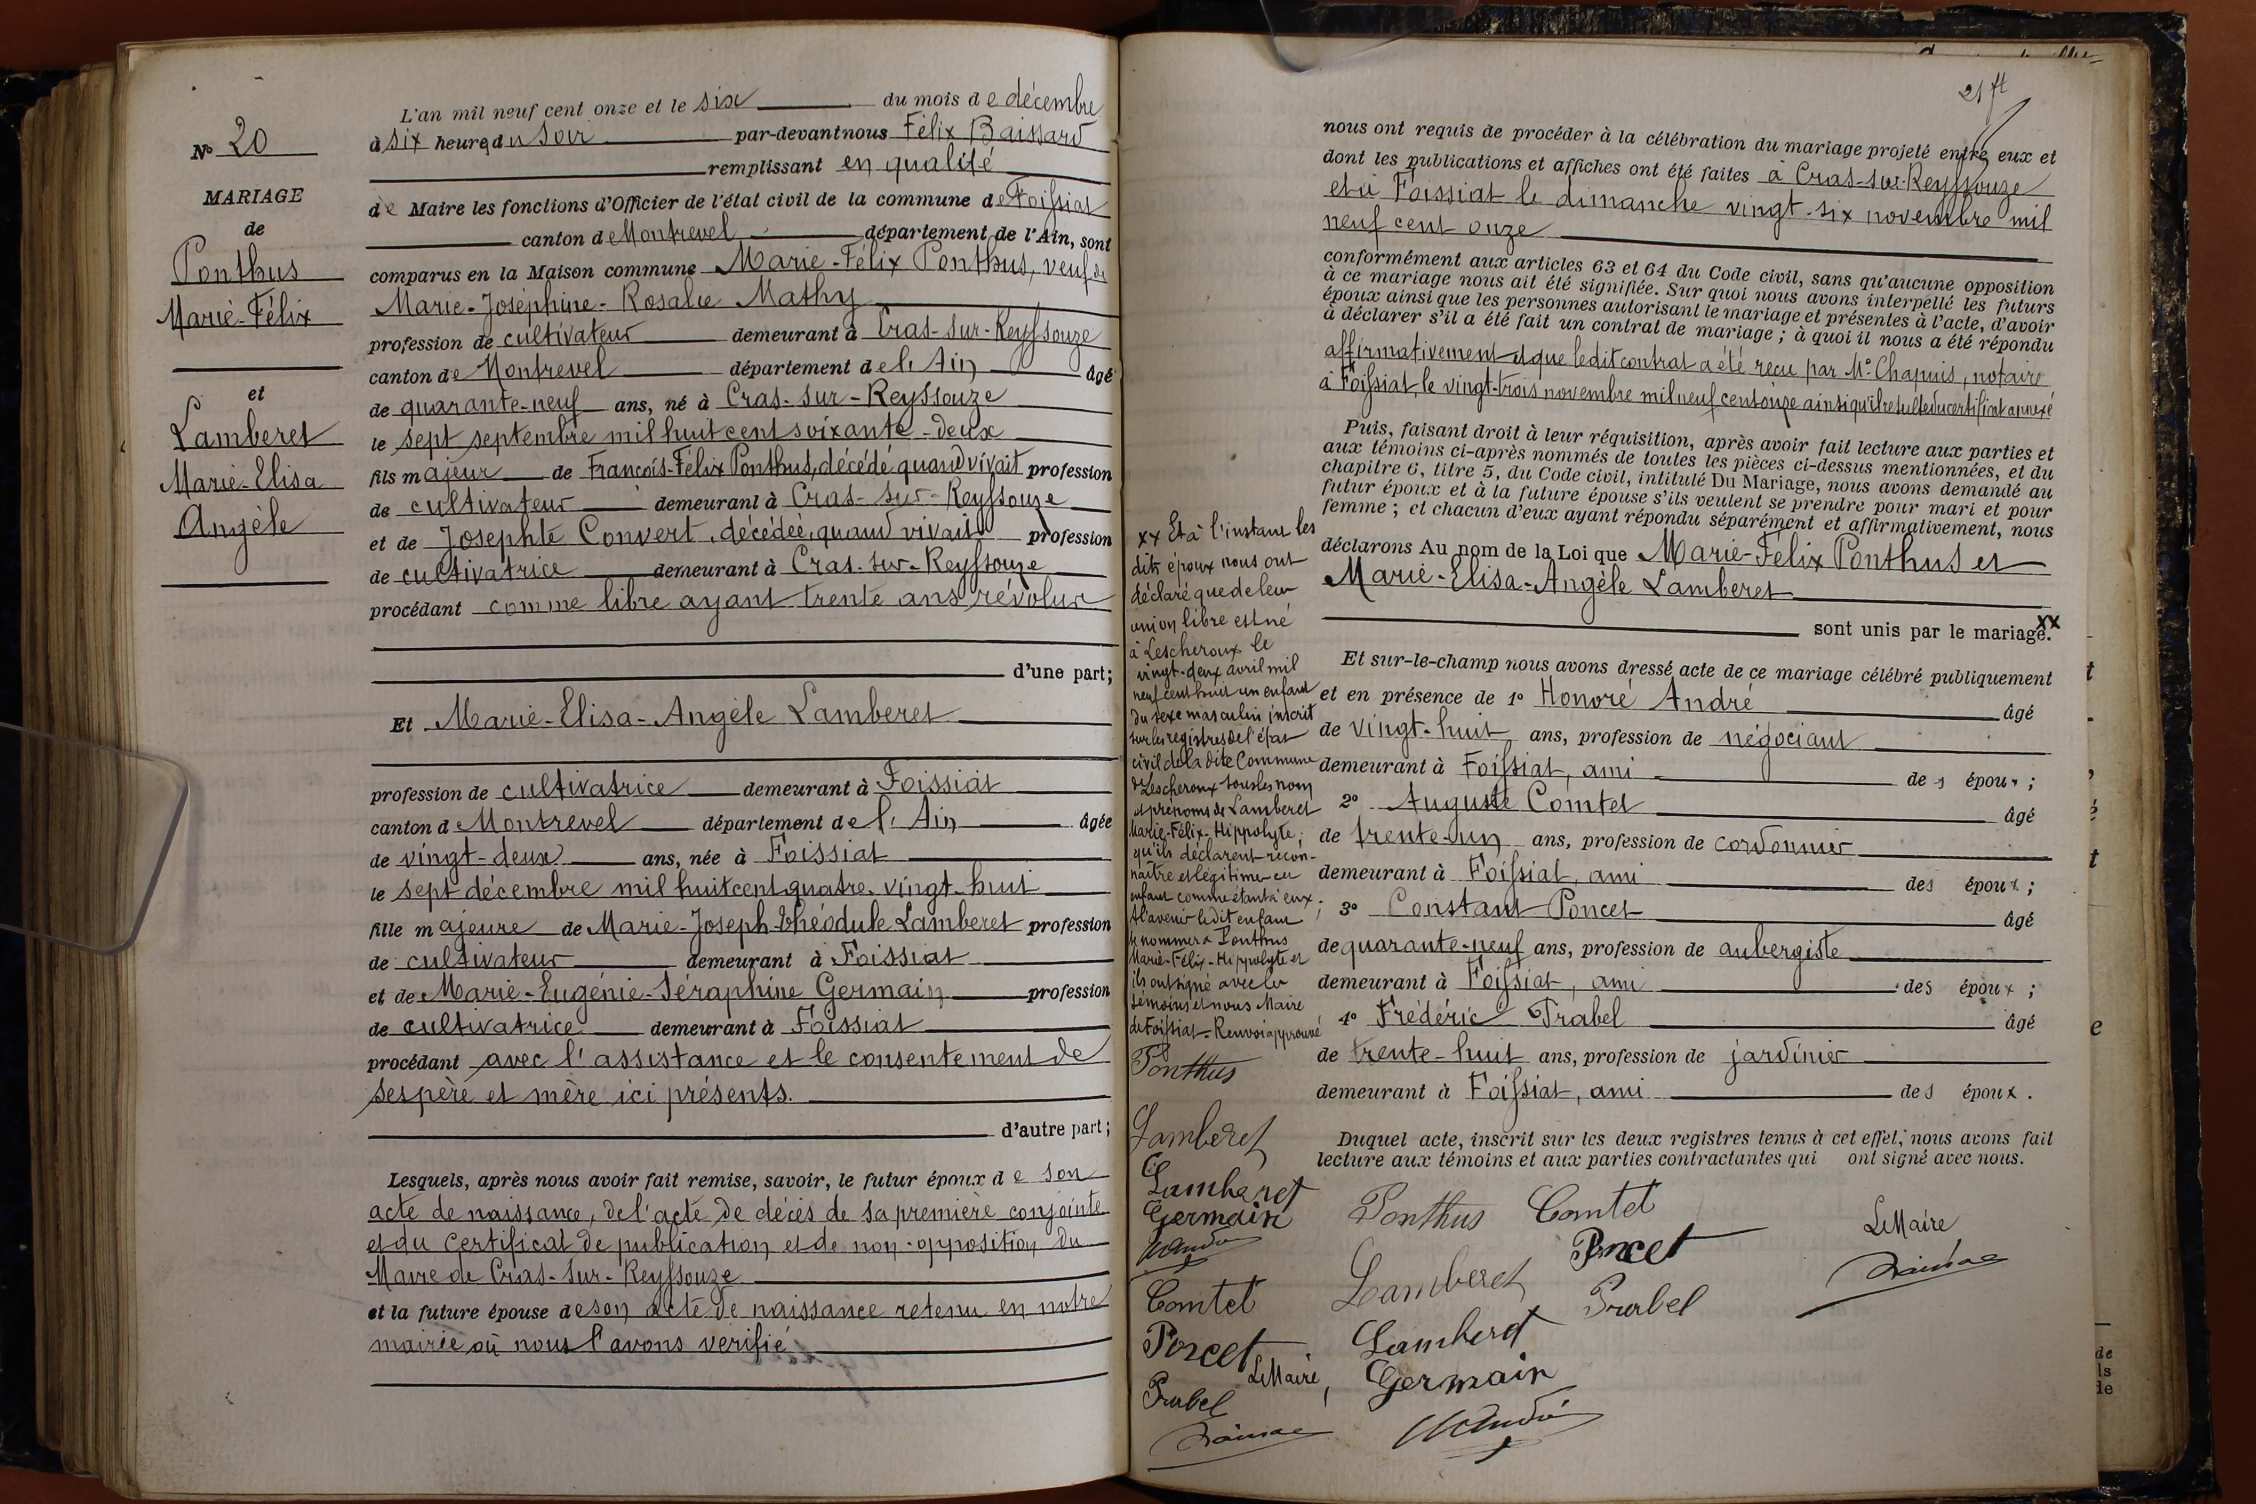 N° 20
MARIAGE
de
Ponthus
Marie-Félix
et
Lamberet
Marie-Elisa
Angèle
L'an mil neuf cent onze et le six du mois de décembre
à six heures du soir par-devant nous Félix Baissard
remplissant en qualité
de Maire les fonctions d'Officier de l'état civil de la commune de Foissiat
canton de Montrevel département de l'Ain, sont
comparus en la Maison commune Marie-Félix Ponthus, veuf de
Marie-Joséphine-Rosalie Mathy
profession de cultivateur demeurant à Cras-sur-Reyssouze
canton de Montrevel département de l'Ain âgé
de quarante-neuf ans, né à Cras-sur-Reyssouze
le sept septembre mil huit cent soixante-deux
fils majeur de François-Félix Ponthus, décédé, quand vivait profession
de cultivateur demeurant à Cras-sur-Reyssouze
et de Josephte Convert, décédée, quand vivait profession
de cultivatrice demeurant à Cras-sur-Reyssouze
procédant comme libre ayant trente ans révolus
d'une part;
Et Marie-Elisa-Angèle Lamberet
profession de cultivatrice demeurant à Foissiat
canton de Montrevel département de l'Ain âgée
de vingt-deux ans, née à Foissiat
le sept décembre mil huit cent quatre-vingt-huit
fille majeure de Marie-Joseph-Théodule Lamberet profession
de cultivateur demeurant à Foissiat
et de Marie-Eugénie-Séraphine Germain profession
de cultivatrice demeurant à Foissiat
procédant avec l'assistance et le consentement de
ses père et mère ici présents.
d'autre part;
Lesquels, après nous avoir fait remise, savoir, le futur époux de son
acte de naissance, de l'acte de décès de sa première conjointe
et du certificat de publication et de non-opposition du
Maire de Cras-sur-Reyssouze
et la future épouse de son acte de naissance retenu en notre
mairie où nous l'avons vérifié
21 ft
nous ont requis de procéder à la célébration du mariage projeté entre eux et
dont les publications et affiches ont été faites à Cras-sur-Reyssouze
et à Foissiat le dimanche vingt-six novembre mil
neuf cent onze
conformément aux articles 63 et 64 du Code civil, sans qu'aucune opposition
à ce mariage nous ait été signifiée. Sur quoi nous avons interpellé les futurs
époux ainsi que les personnes autorisant le mariage et présentes à l'acte, d'avoir
à déclarer s'il a été fait un contrat de mariage; à quoi il nous a été répondu
affirmativement et que ledit contrat a été reçu par Me Chapuis, notaire
à Foissiat, le vingt-trois novembre mil neuf cent onze ainsi qu'il résulte du certificat annexé
Puis, faisant droit à leur réquisition, après avoir fait lecture aux parties et
aux témoins ci-après nommés de toutes les pièces ci-dessus mentionnées, et du
chapitre 6, titre 5, du Code civil, intitulé Du Mariage, nous avons demandé au
futur époux et à la future épouse s'ils veulent se prendre pour mari et pour
femme; et chacun d'eux ayant répondu séparément et affirmativement, nous
déclarons Au nom de la Loi que Marie-Félix Ponthus et
Marie-Elisa-Angèle Lamberet
sont unis par le mariage. xx
Et sur-le-champ nous avons dressé acte de ce mariage célébré publiquement
et en présence de 1° Honoré André âgé
de vingt-huit ans, profession de négociant
demeurant à Foissiat, ami des époux;
2° Auguste Comtet âgé
de trente-un ans, profession de cordonnier
demeurant à Foissiat, ami des époux;
3° Constant Poncet âgé
de quarante-neuf ans, profession de aubergiste
demeurant à Foissiat, ami des époux;
4° Frédéric Prabel âgé
de trente-huit ans, profession de jardinier
demeurant à Foissiat, ami des époux.
Duquel acte, inscrit sur les deux registres tenus à cet effet, nous avons fait
lecture aux témoins et aux parties contractantes qui ont signé avec nous.
Ponthus Comtet
Le Maire
Poncet
Lamberet
Prabel
Lamberet
Germain
xx Et à l'instant les
dits époux nous ont
déclaré que de leur
union libre est né
à Lescheroux le
vingt-deux avril mil
neuf cent huit un enfant
du sexe masculin inscrit
sur les registres de l'état
civil de la dite Commune
de Lescheroux sous les nom
et prénoms de Lamberet
Marie-Félix-Hippolyte;
qu'ils déclarent recon-
naître et légitimer cet
enfant comme étant à eux;
à l'avenir le dit enfant
se nommera Ponthus
Marie-Félix-Hippolyte et
ils ont signé avec les
témoins et nous Maire
de Foissiat. Renvoi approuvé
Ponthus
Lamberet
Lamberet
Germain
Comtet
Poncet
Le Maire,
Prabel